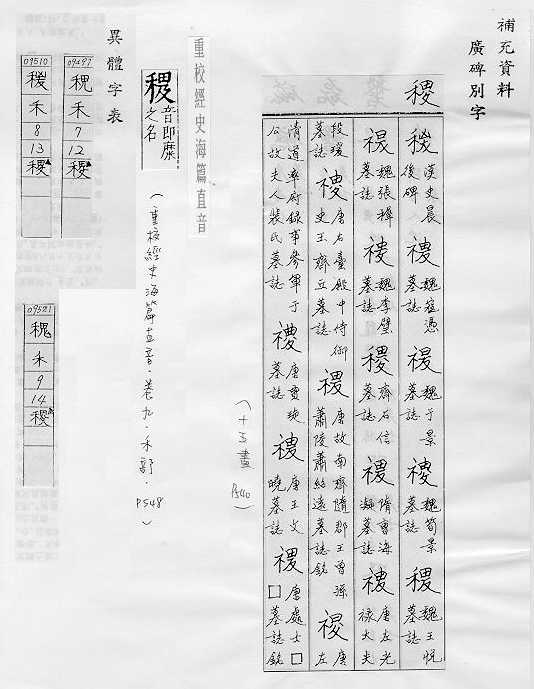 補充資料
廣碑別字
稷
漢史晨
後碑
魏寇憑
墓誌
魏于景
墓誌
魏筍景
墓誌
稷
魏王悅
墓誌
魏張猛
墓誌
魏李璧
墓誌
稷
齊石信
墓誌
隋曹海
凝墓誌
唐左光
祿大夫
段瑗
墓誌
唐右臺殿中侍御
史王齊丘墓誌
唐故南齊隨郡王曾孫
蘭陵蕭紿遠墓誌銘
唐左
清道率府錄事參軍于
公故夫人裴氏墓誌
唐賈琁
墓誌
唐王文
曉墓誌
唐處士□
□墓誌銘
(十五畫 P540)
重校經史海篇直音
稷
音即縻
之名
(重校經史海篇直音·卷九·禾部·P548)
異體字表
09497
禾
7
12
稷
09510
禾
8
13
稷
09521
禾
9
14
稷